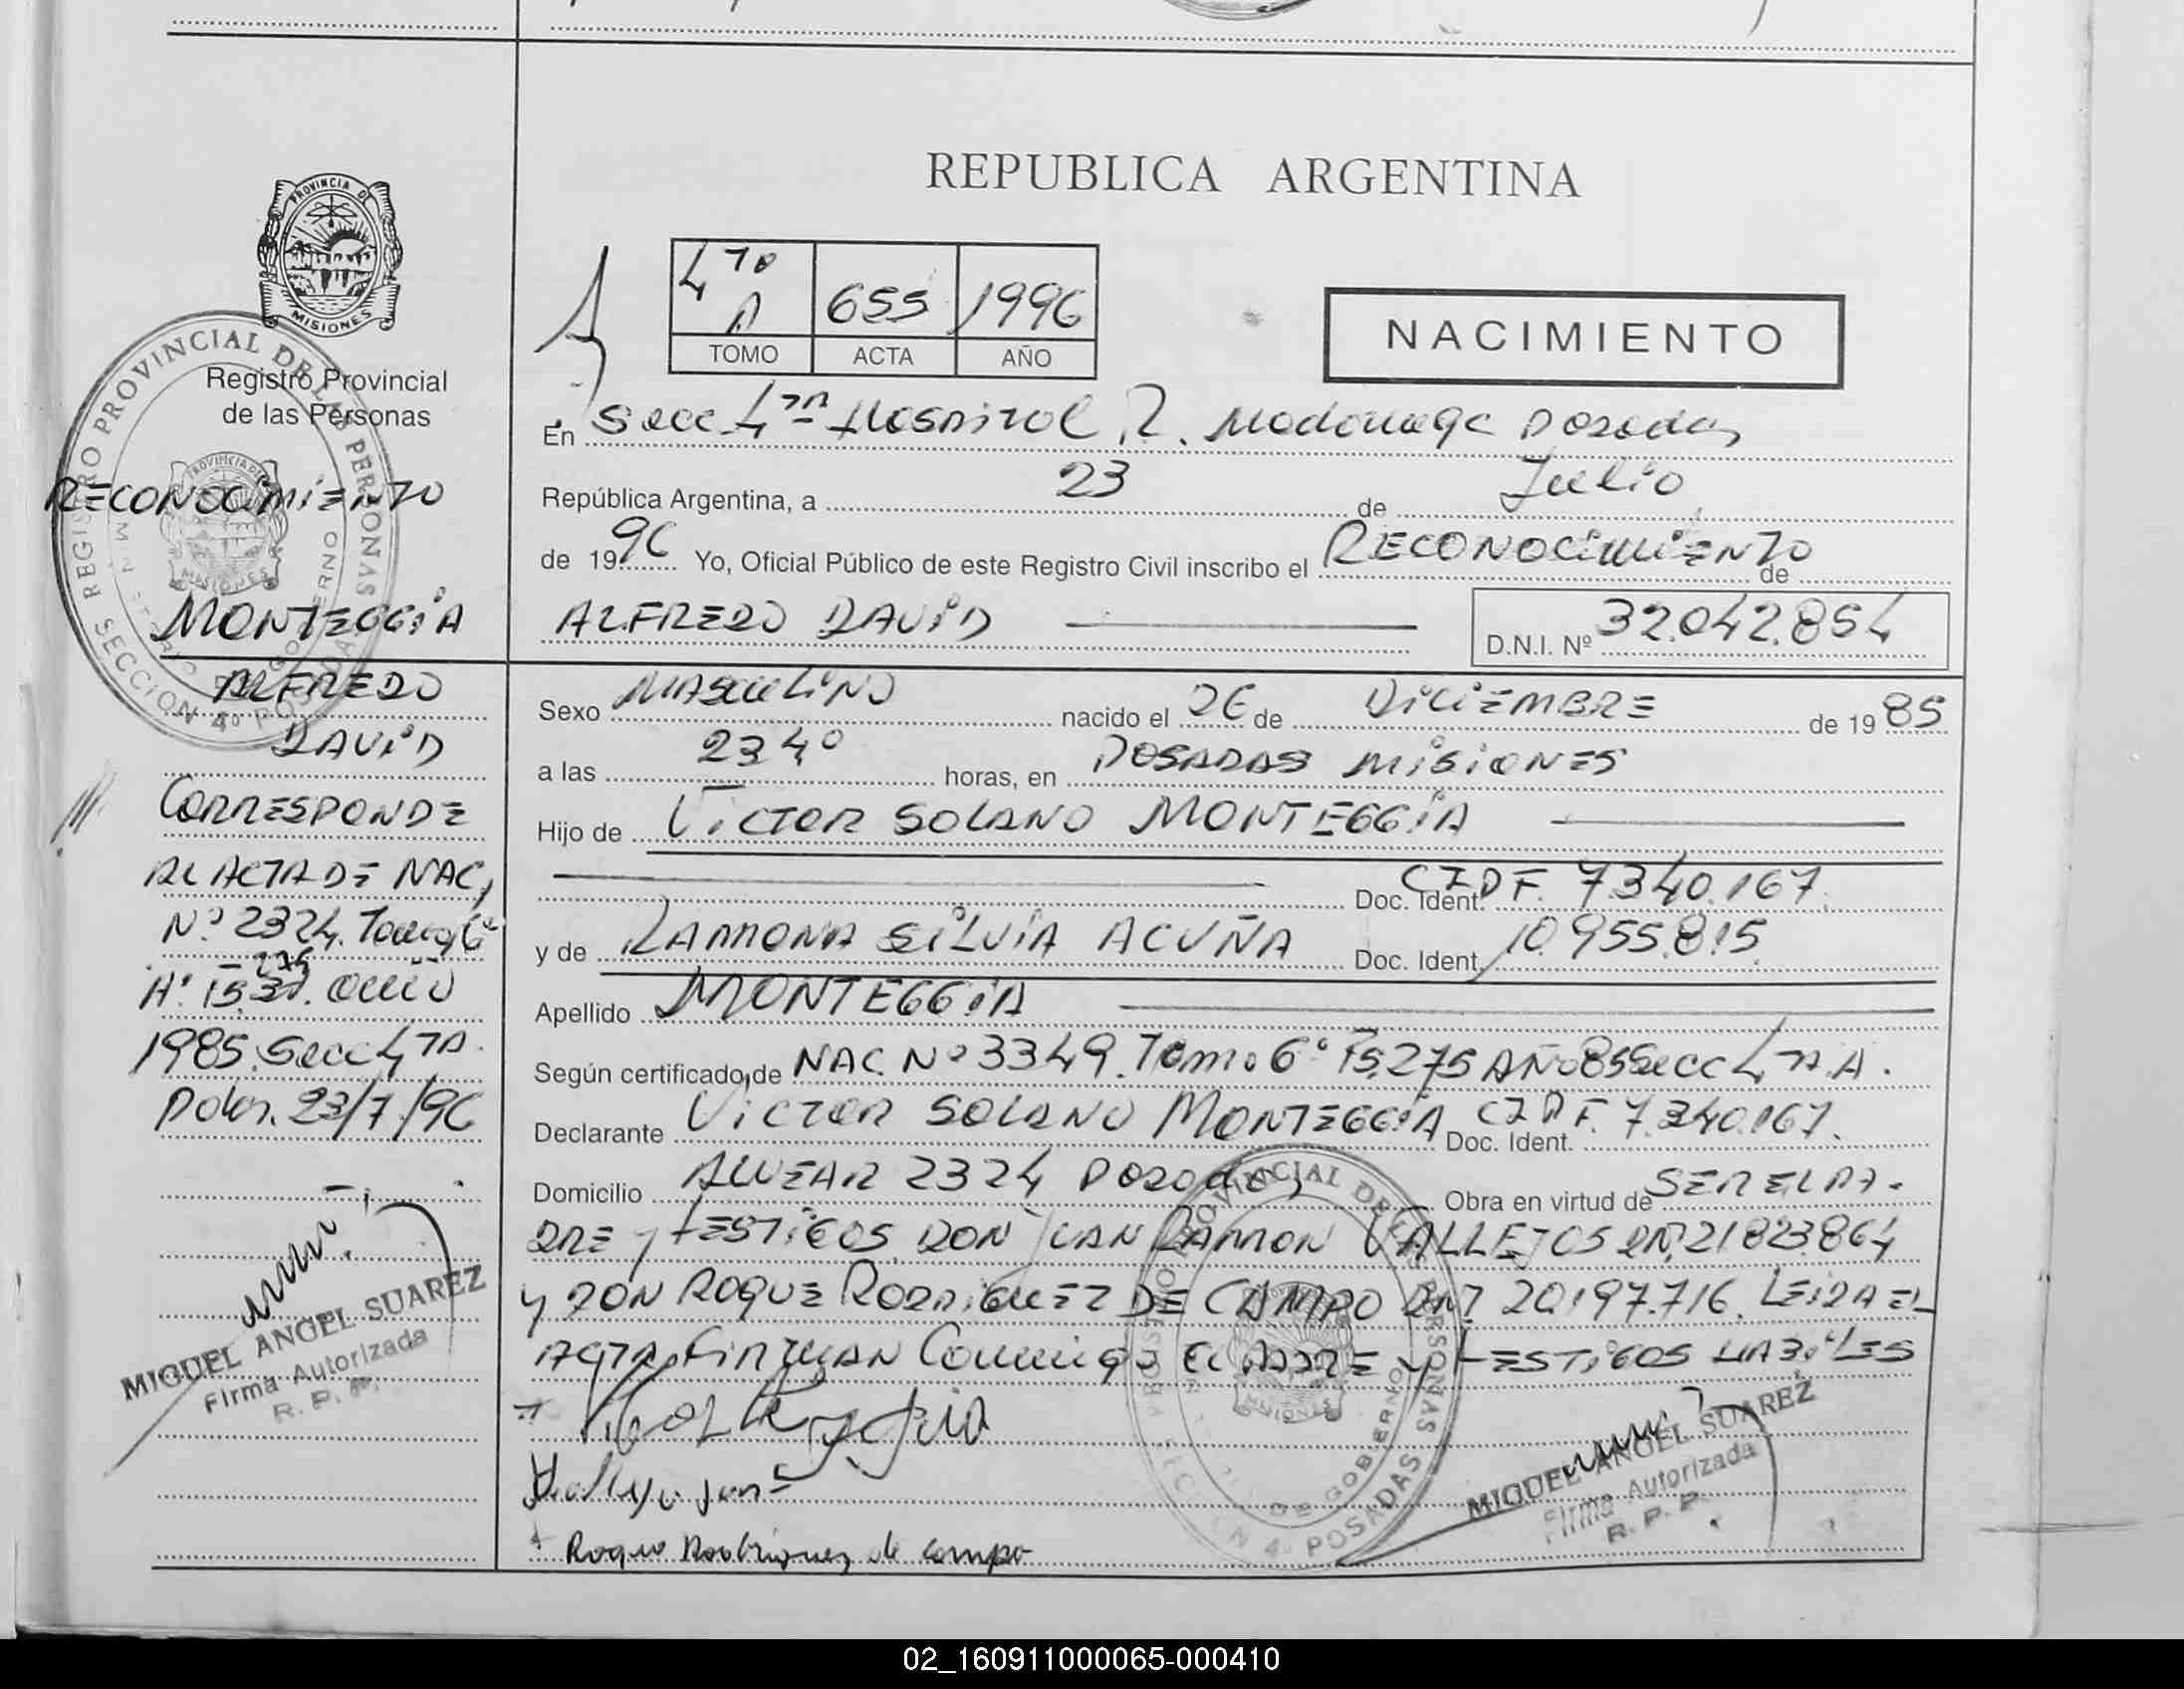 REPUBLICA ARGENTINA
PROVINCIA DE
MISIONES
Registro Provincial
de las Personas
REGISTRO PROVINCIAL DE LAS PERSONAS
SECCION 4º POSADAS
RECONOCIMIENTO
MONTEGGIA
ALFREDO
DAVID
CORRESPONDE
AL ACTA DE NAC,
Nº 2324. Tomo 6º
1985. Secc 4TA.
23/7/96
MIGUEL ANGEL SUAREZ
Firma Autorizada
R. P. P.
4TO A 655 1996
TOMO ACTA AÑO
NACIMIENTO
En Secc 4TA Hospital R. Madariaga Posadas
República Argentina, a 23 de Julio
de 1996 Yo, Oficial Público de este Registro Civil inscribo el RECONOCIMIENTO de
ALFREDO DAVID D.N.I. Nº 32.042.854
Sexo MASCULINO nacido el 26 de DICIEMBRE de 1985
a las 2340 horas, en POSADAS MISIONES
Hijo de VICTOR SOLANO MONTEGGIA
Doc. Ident. CIDF. 7.340.167.
y de RAMONA SILVIA ACUÑA Doc. Ident. 10.955.815.
Apellido MONTEGGIA
Según certificado de NAC. Nº 3349. Tomo 6º Fs. 275 AÑO 85 Secc 4TA.A.
Declarante VICTOR SOLANO MONTEGGIA Doc. Ident. CIDF. 7.340.167.
Domicilio ALVEAR 2324 Posadas Obra en virtud de SER EL PA-
DRE y TESTIGOS DON JUAN RAMON VALLEJOS DNI 21823.864
y DON ROQUE RODRIGUEZ DE CAMPO DNI 20.197.716. LEIDA EL
ACTA FIRMAN Conmigo EL PADRE y TESTIGOS HABILES
Roque Rodriguez de campo
REGISTRO PROVINCIAL DE LAS PERSONAS
MISIONES
DE GOBIERNO
4º POSADAS
MIGUEL ANGEL SUAREZ
Firma Autorizada
R. P. P.
02_160911000065-000410